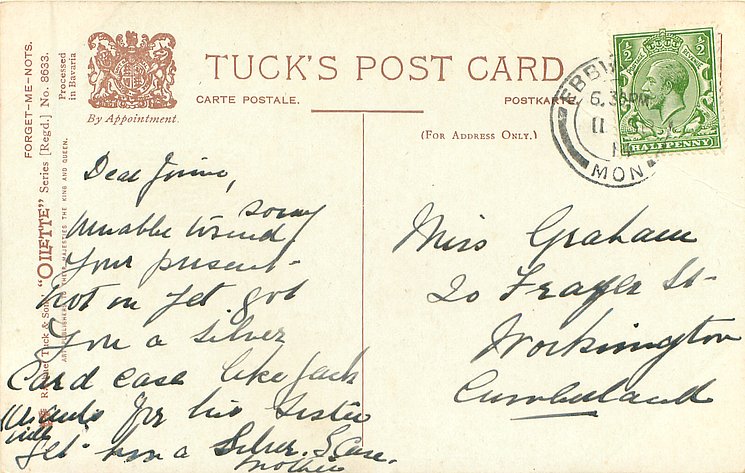 FORGET-ME-NOTS.
"OILETTE" Series [Regd.] No. 8633.
Processed
in Bavaria
Raphael Tuck & Sons'
ART PUBLISHERS TO THEIR MAJESTIES THE KING AND QUEEN.
By Appointment.
TUCK'S POST CARD
CARTE POSTALE.
POSTKARTE
(FOR ADDRESS ONLY.)
EBBW
6.30PM
11
MON
½ ½
HALFPENNY
Dear
sorry
Unable to send
Your present
Not on yet got
You a silver
Card case like Jack
for his sister
will get him a Silver. S Case.
Mother
Miss Graham
20 Frazer St
Workington
Cumberland